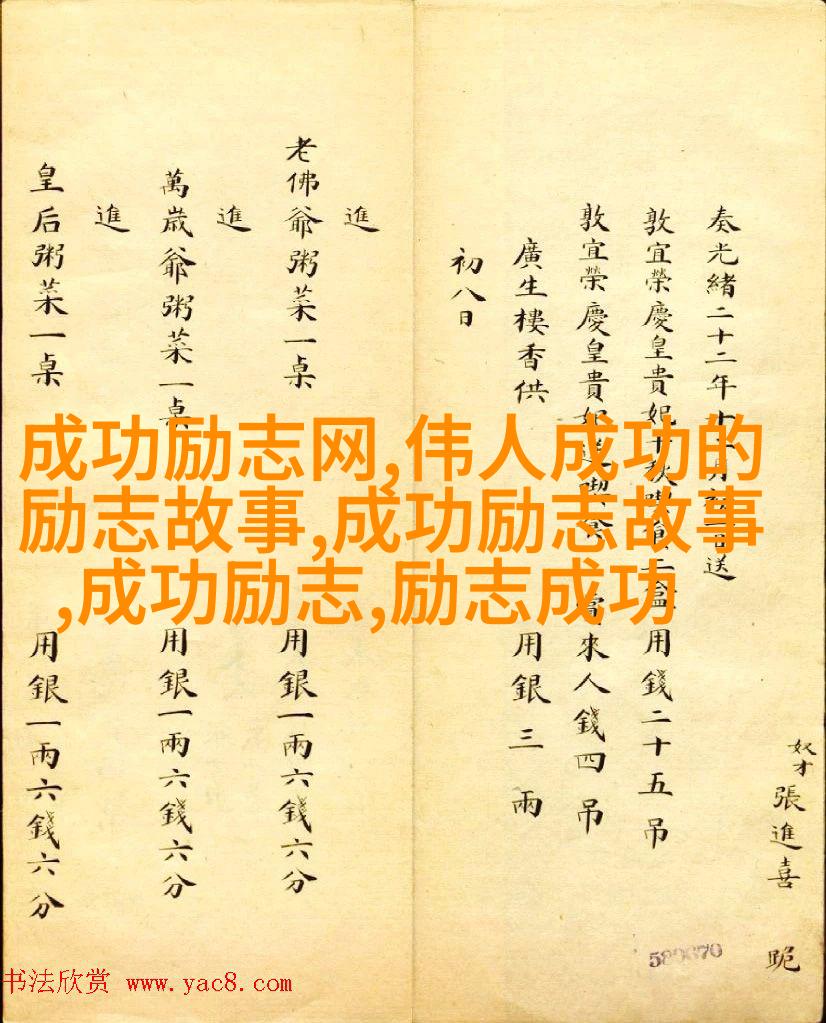 奴才張進喜 跪
奏光緒二十二年十
送
敦宜榮慶皇貴妃千秋
用錢二十五吊
敦宜榮慶皇貴妃
賞來人錢四吊
廣生樓香供 用銀三兩
初八日
進
老佛爺粥菜一桌 用銀一兩六錢六分
進
萬歲爺粥菜一桌 用銀一兩六錢六分
進
皇后粥菜一桌 用銀一兩六錢六分
成功励志网,伟人成功的
励志故事,成功励志故事
,成功励志,励志成功
书法欣赏 www.yac8.com